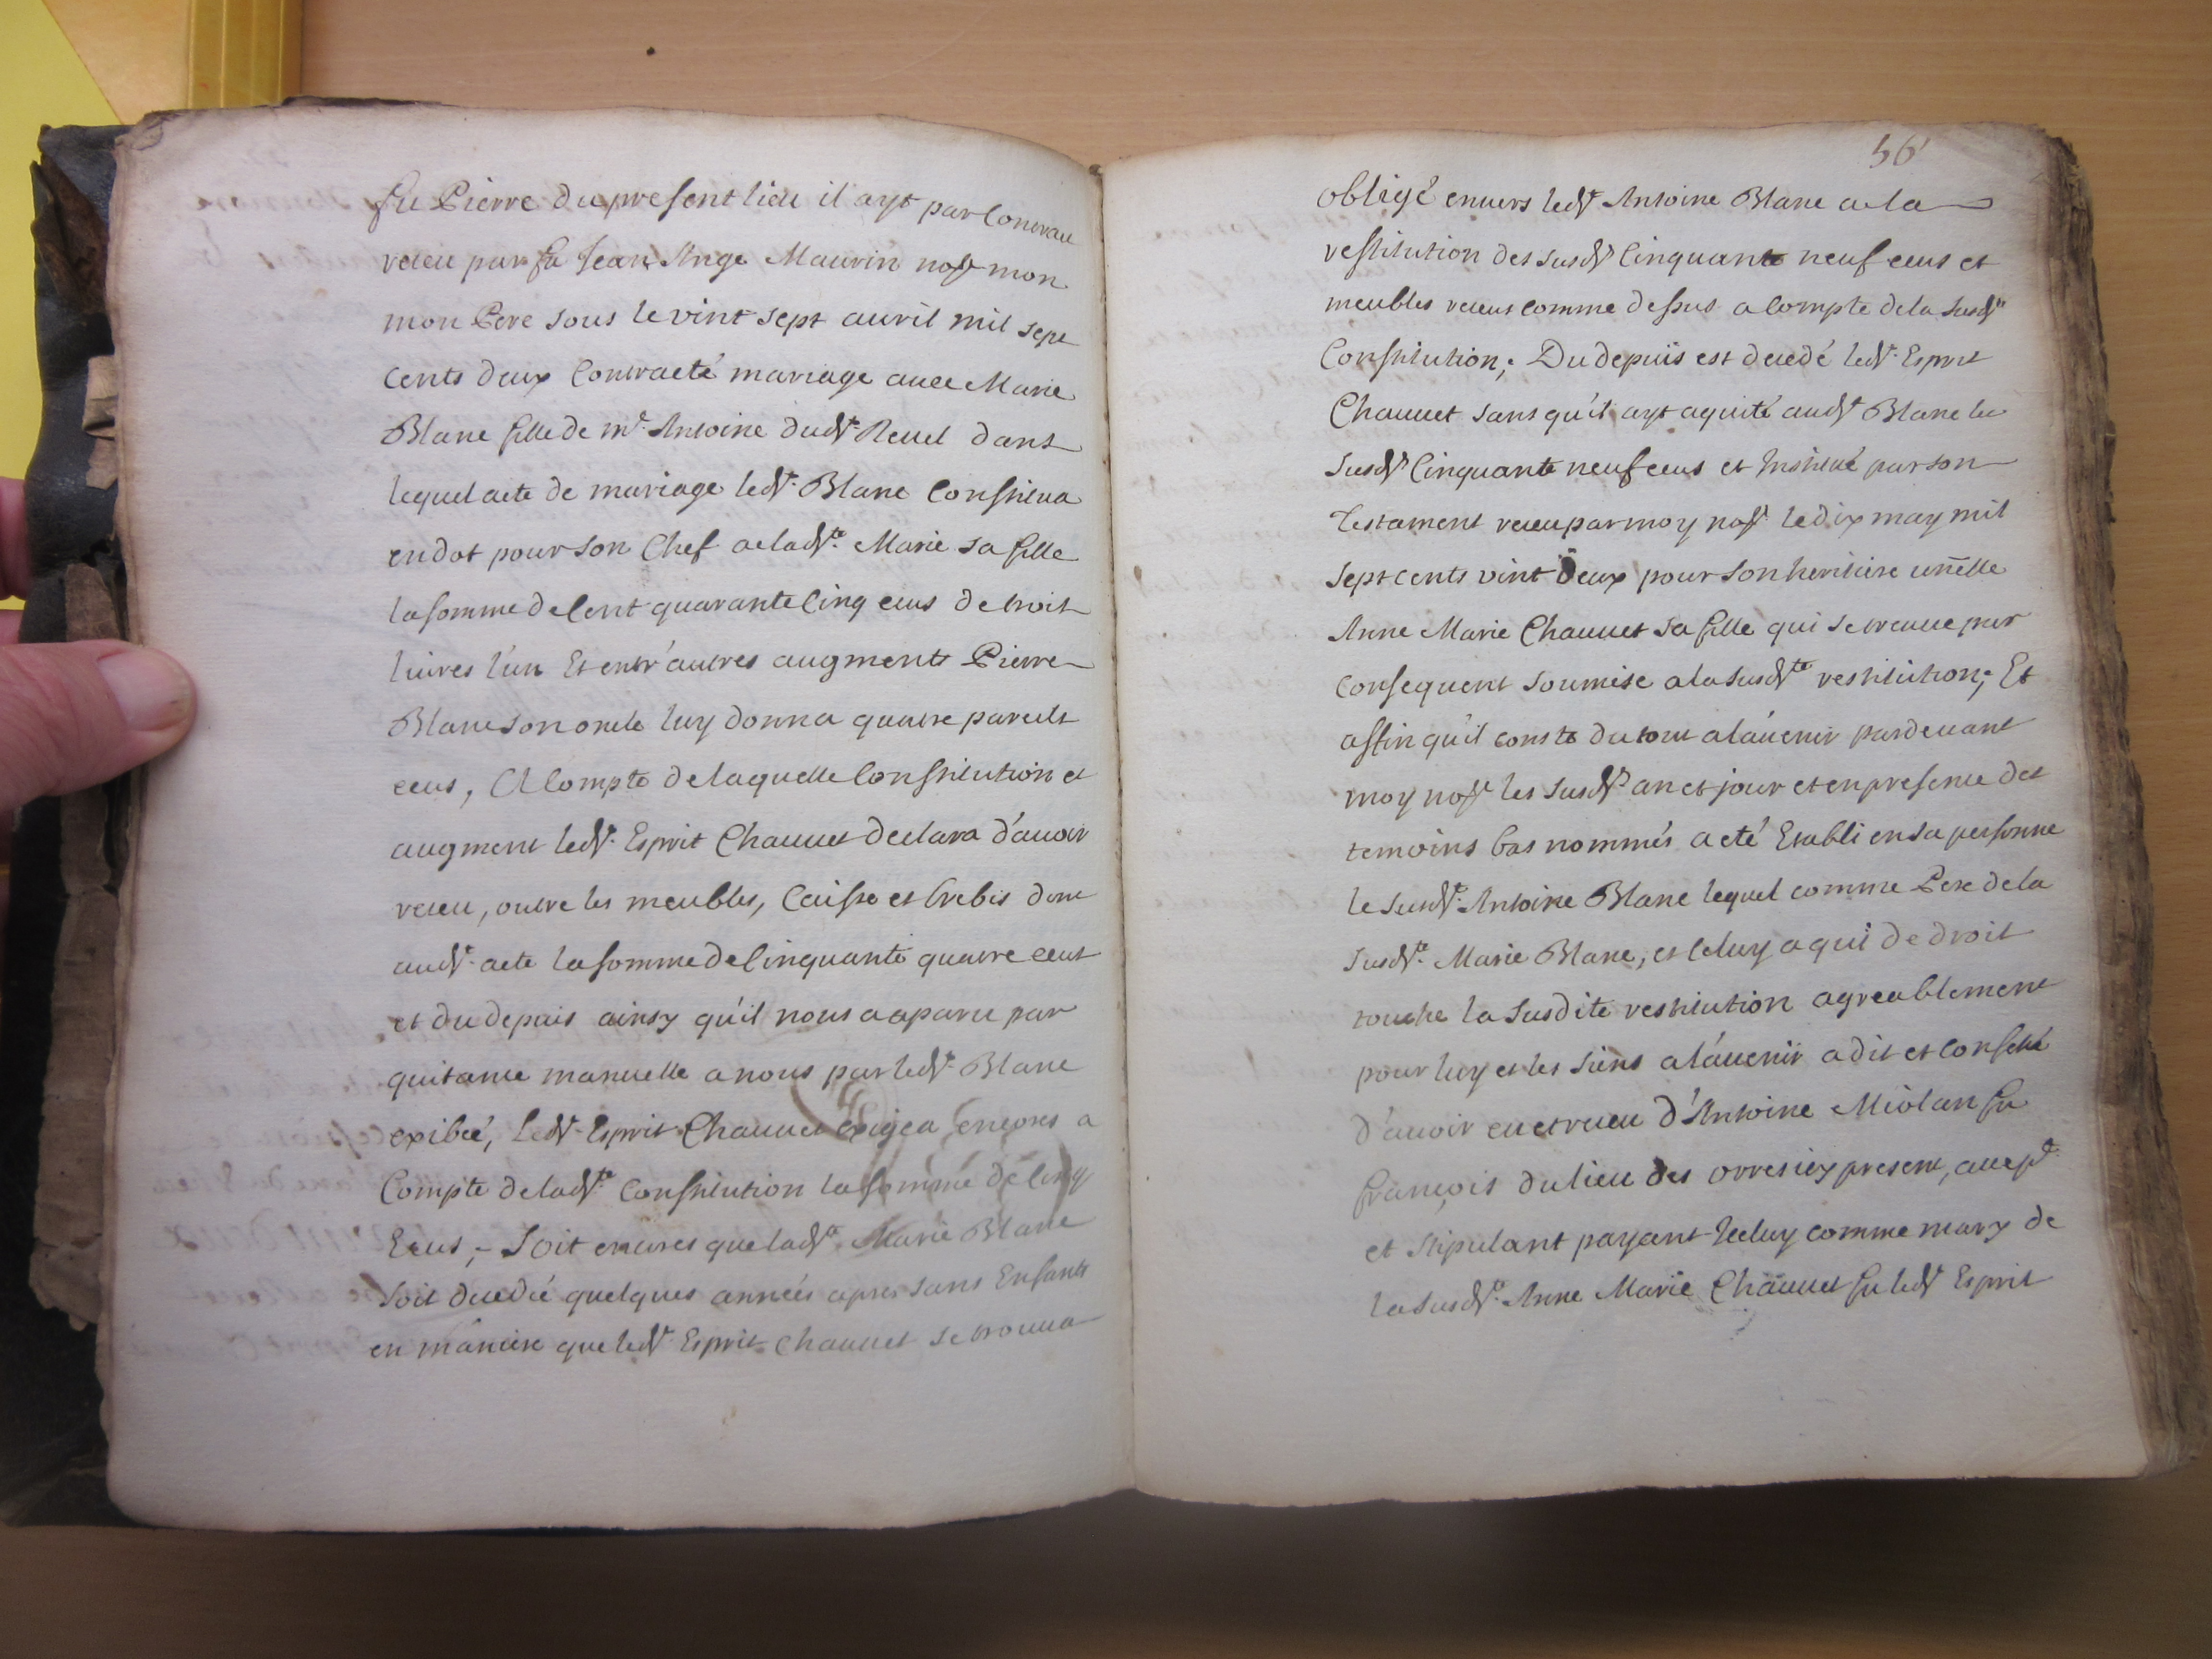 fu Pierre du present lieu il ayt par Contract
receu par fu Jean Ange Maurin nore mon
mon Pere sous le vint sept auril mil sept
cents deux Contracté mariage auec Marie
Blanc fille de mr Antoine dudt Reuel dans
lequel acte de mariage ledt Blanc Constitua
en dot pour son Chef a ladte Marie sa fille
la somme de Cent quarante Cinq ecus de trois
liures l'un Et entr'autres augments Pierre
Blanc son oncle luy donna quatre pareils
ecus, A Compte de laquelle Constitution et
augment ledt Esprit Chauuet declara d'auoir
receu, outre les meubles, Caisse et brebis dont
audt acte la somme de Cinquante quatre ecus
et du depuis ainsy qu'il nous a aparu par
quitance manuelle a nous par ledt Blanc
exibée, Ledt Esprit Chauuet Exigea encores a
Compte de ladte Constitution la somme de Cinq
Ecus,- Soit encores que ladte Marie Blanc
soit decedée quelques années apres sans Enfants
en maniere que ledt Esprit Chauuet se trouua
56
obligé enuers ledt Antoine Blanc a la
restitution des susds Cinquante neuf ecus et
meubles receus comme dessus a Compte de la susdte
Constitution; Du depuis est decedé ledt Esprit
Chauuet sans qu'il ayt aquité audt Blanc les
susds Cinquante neuf ecus et Institué par son
Testament receu par moy nore le dix may mil
sept cents vint Deux pour son heritiere unělle
Anne Marie Chauuet sa fille qui se treuue par
Consequent soumise a la susdte restitution; Et
affin qu'il conste du tout a l'auenir pardeuant
moy nore les susds an et jour et en presence des
temoins bas nommés a eté Etabli en sa personne
le susdt Antoine Blanc lequel comme Pere de la
susdte Marie Blanc, et Celuy a qui de droit
touche la susdite restitution agreablement
pour luy et les siens a l'auenir a dit et Confessé
d'auoir eu et receu d'Antoine Miolan fu
françois du lieu des orres icy present, accept
et stipulant payant Icelluy comme mary de
la susdte Anne Marie Chauuet fu ledt Esprit